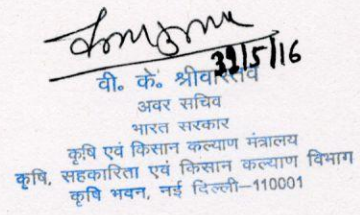 31/5/16
वी० के० श्रीवास्तव
अवर सचिव
भारत सरकार
कृषि एवं किसान कल्याण मंत्रालय
कृषि, सहकारिता एवं किसान कल्याण विभाग
कृषि भवन, नई दिल्ली–110001